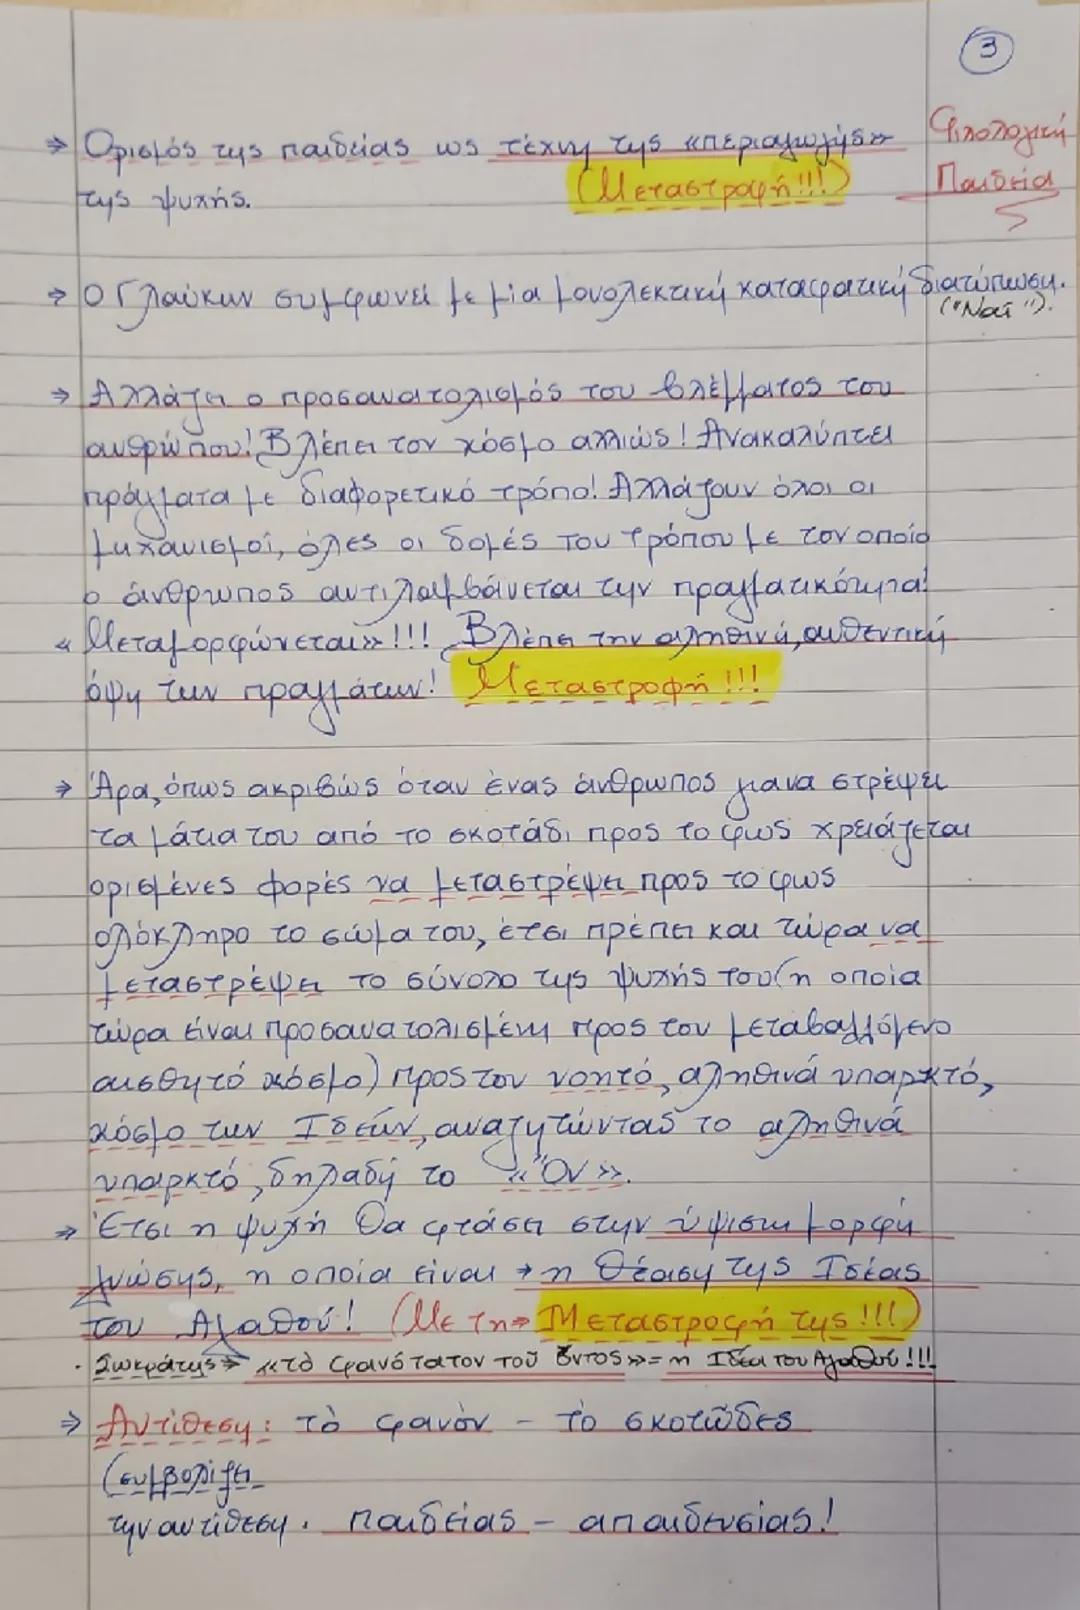 3
Φιλολογική
Παιδεία
⇒ Ορισμός της παιδείας ως τέχνη της «περιαγωγής»
(Μεταστροφή!!!)
της ψυχής.
⇒ Ο Γλαύκων συμφωνεί με μία μονολεκτική καταφατική διατύπωση.
("Ναί").
⇒ Αλλάζει ο προσανατολισμός του βλέμματος του
ανθρώπου! Βλέπει τον κόσμο αλλιώς! Ανακαλύπτει
πράγματα με διαφορετικό τρόπο! Αλλάζουν όλοι οι
μηχανισμοί, όλες οι δομές του τρόπου με τον οποίο
ο άνθρωπος αντιλαμβάνεται την πραγματικότητα!
«Μεταμορφώνεται»!!! Βλέπει την αληθινή, αυθεντική
όψη των πραγμάτων! Μεταστροφή!!!
⇒ Άρα, όπως ακριβώς όταν ένας άνθρωπος για να στρέψει
τα μάτια του από το σκοτάδι προς το φως χρειάζεται
ορισμένες φορές να μεταστρέψει προς το φως
ολόκληρο το σώμα του, έτσι πρέπει και τώρα να
μεταστρέψει το σύνολο της ψυχής του (η οποία
τώρα είναι προσανατολισμένη προς τον μεταβαλλόμενο
αισθητό κόσμο) προς τον νοητό, αληθινά υπαρκτό,
κόσμο των Ιδεών, αναζητώντας το αληθινά
υπαρκτό, δηλαδή το «Ὄν».
⇒ Έτσι η ψυχή θα φτάσει στην ύψιστη μορφή
γνώσης, η οποία είναι → η θέαση της Ιδέας
του Αγαθού! (Με τη ⇒ Μεταστροφή της!!!)
· Σωκράτης ⇒ «τὸ φανότατον τοῦ ὄντος» = η Ιδέα του Αγαθού!!!
⇒ Αντίθεση: τὸ φανὸν - τὸ σκοτῶδες
(συμβολίζει
την αντίθεση. παιδείας - απαιδευσίας!